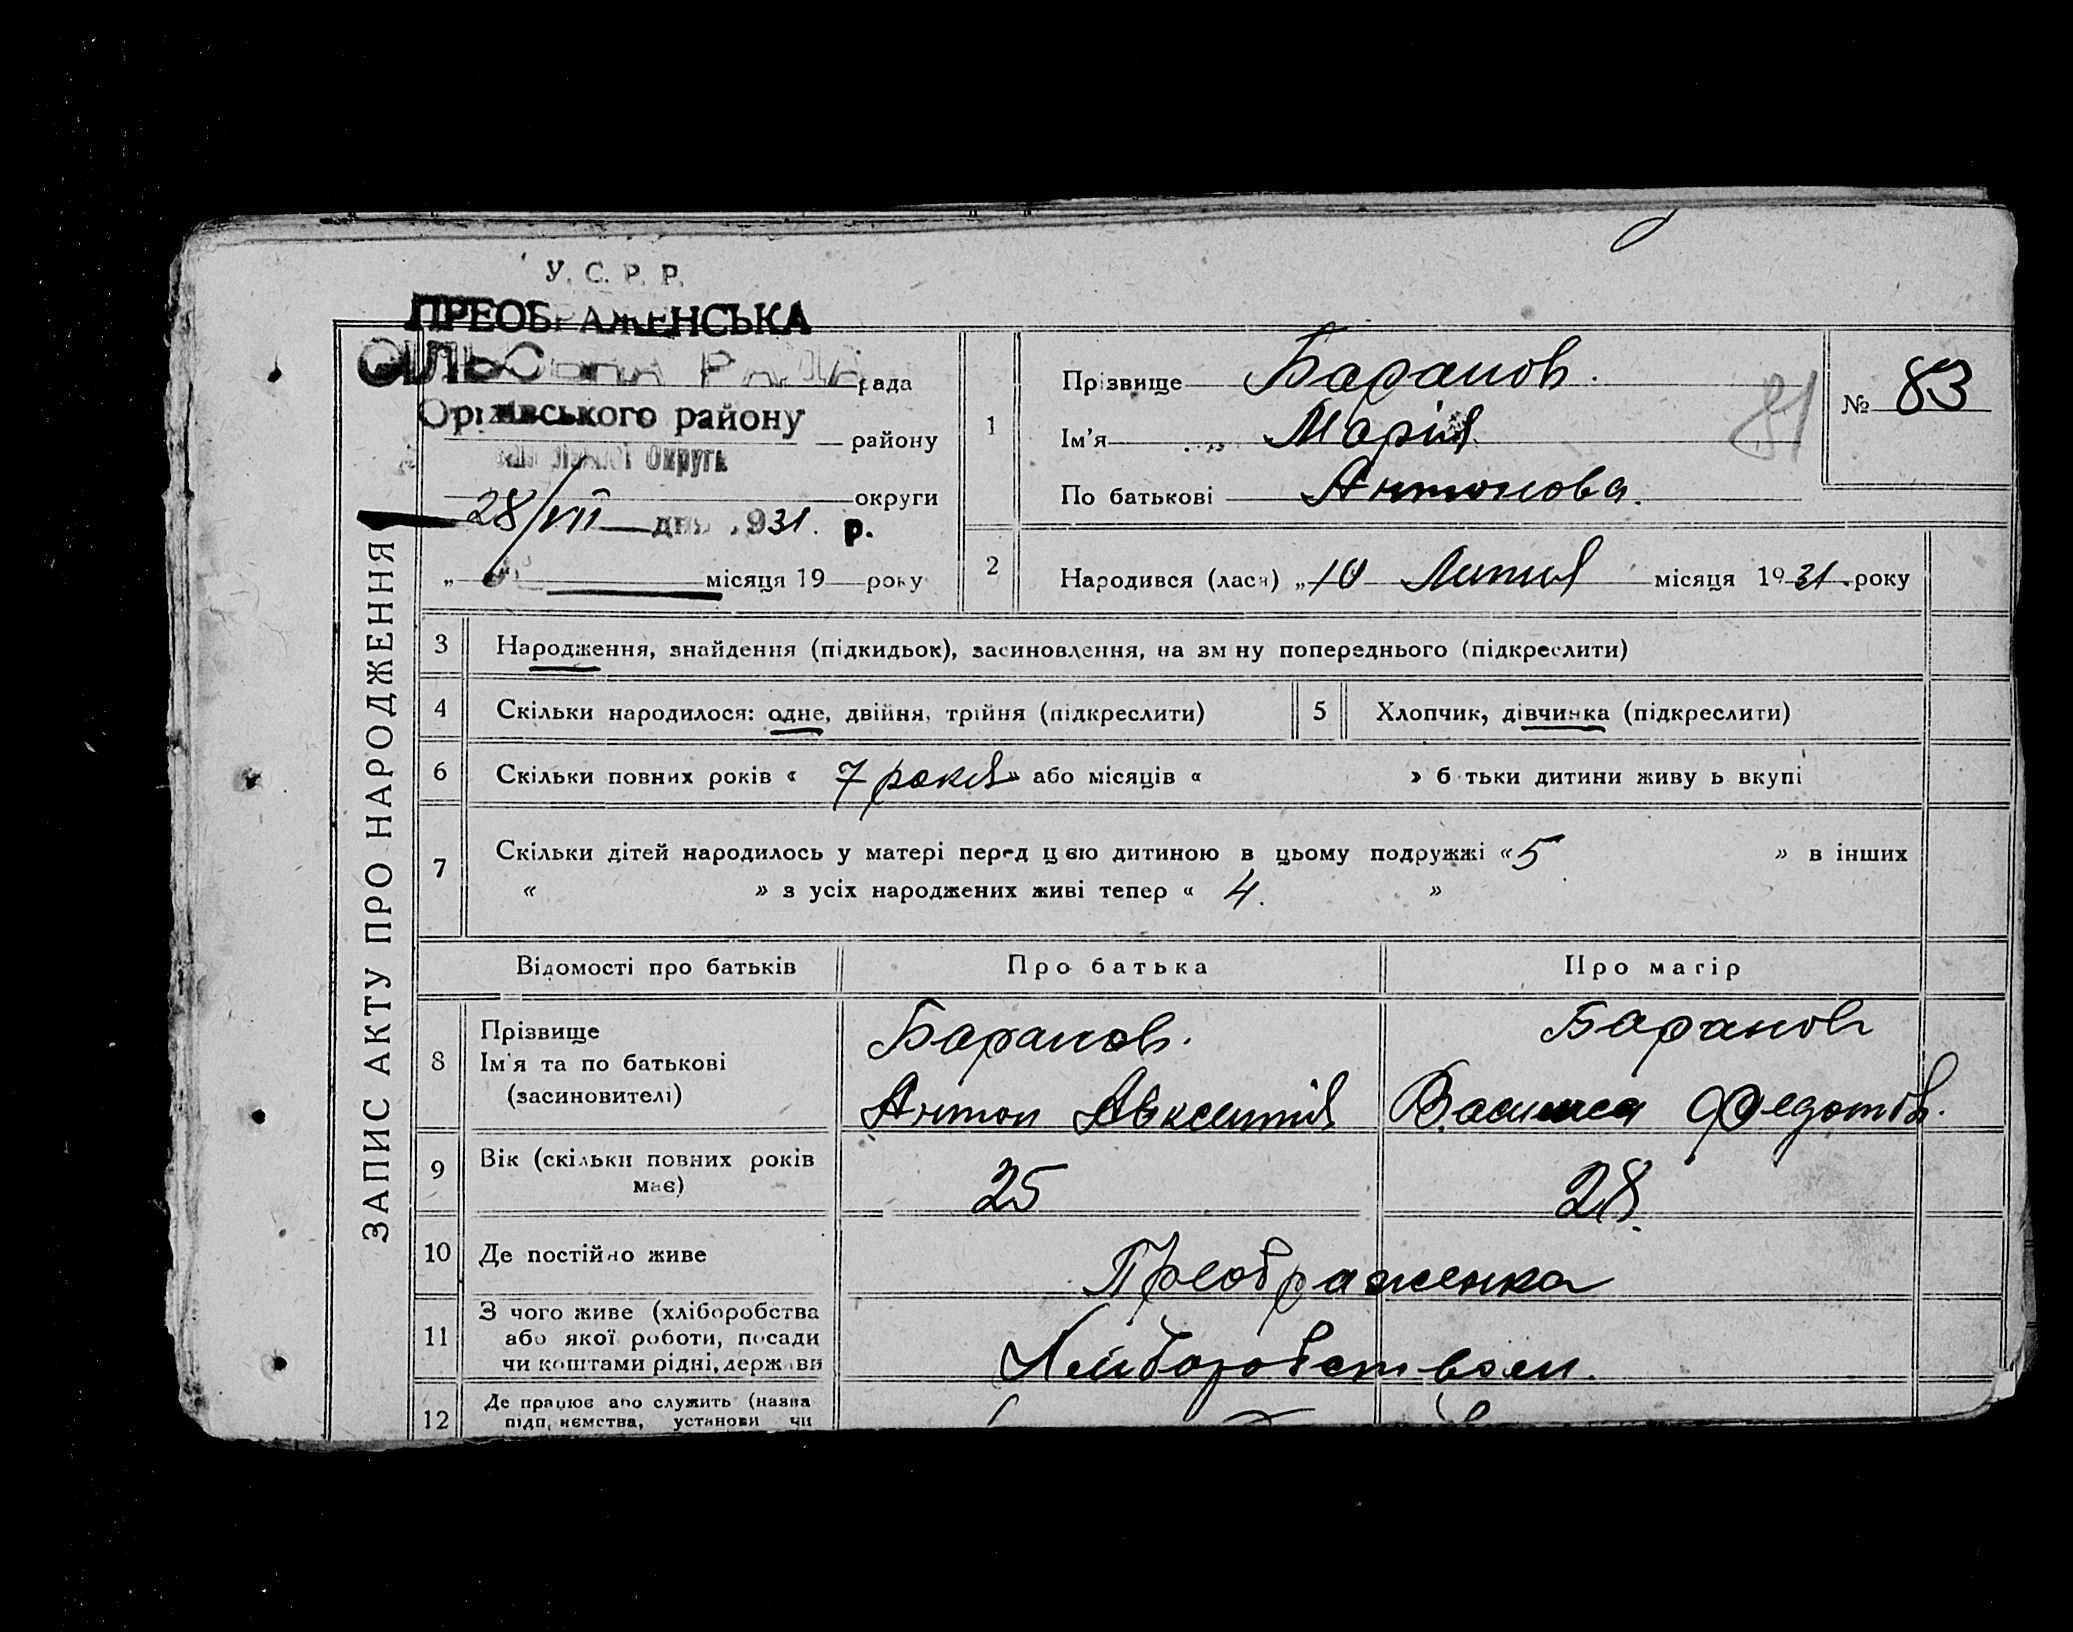 У. С. Р. Р.
ПРЕОБРАЖЕНСЬКА
СІЛЬСЬКА РАДА рада
Оріхівського району
району
Округи
округи
28/VII дня 1931 р.
„ місяця 19 року
ЗАПИС АКТУ ПРО НАРОДЖЕННЯ
1
Прізвище Баранов.
Ім'я Марія
По батькові Антонова.
81
№ 83
2 Народився (лася) „10 Липня місяця 1931. року
3 Народження, знайдення (підкидьок), засиновлення, на зміну попереднього (підкреслити)
4 Скільки народилося: одне, двійня, трійня (підкреслити)
5 Хлопчик, дівчинка (підкреслити)
6 Скільки повних років « 7 років » або місяців « » батьки дитини живуть вкупі
7 Скільки дітей народилось у матері перед цією дитиною в цьому подружжі « 5 » в інших
« » з усіх народжених живі тепер « 4. »
Відомості про батьків Про батька Про матір
8 Прізвище
Ім'я та по батькові
(засиновителі)
Баранов.
Антон Авксентів
Баранов
Василиса Федотів.
9 Вік (скільки повних років
має)
25 28.
10 Де постійно живе Преображенка
11 З чого живе (хліборобства
або якої роботи, посади
чи коштами рідні, держави
Хліборобством.
12 Де працює або служить (назва
підприємства, установи чи